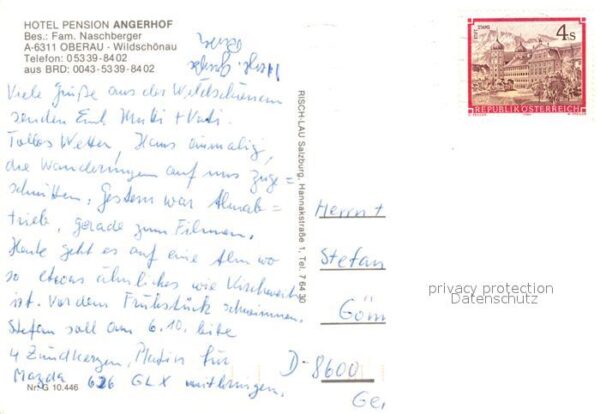 HOTEL PENSION ANGERHOF
Bes.: Fam. Naschberger
A-6311 OBERAU - Wildschönau
Telefon: 05339-8402
aus BRD: 0043-5339-8402
Viele Grüße aus der Wildschönau
senden Euch Mutti + Vati.
Tolles Wetter, Haus einmalig,
die Wanderungen auf uns zuge=
schnitten. Gestern war Almab=
trieb, gerade zum Filmen.
Heute geht es auf eine Alm wo
so etwas ähnliches wie Kirchweih
ist. Vor dem Frühstück schwimmen.
Stefan soll am 6.10. bitte
4 Zündkerzen, für
Mazda 626 GLX mitbringen.
Nr. G 10.446
RISCH-LAU Salzburg, Hannakstraße 1, Tel. 7 64 30
STIFT STAMS
4 S
REPUBLIK ÖSTERREICH
Herrn +
Stefan
Göm
D-8600
Ge
privacy protection
Datenschutz